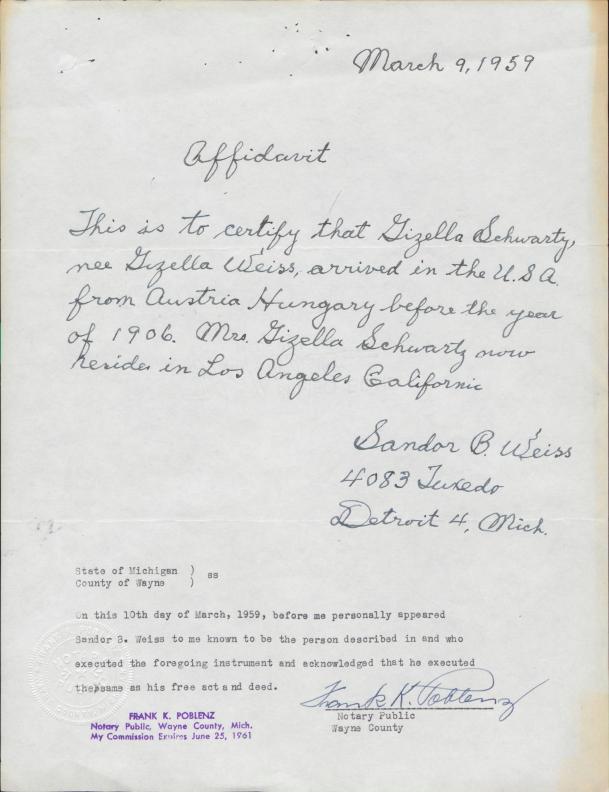 March 9, 1959
Affidavit
This is to certify that Gizella Schwartz,
nee Gizella Weiss, arrived in the U.S.A.
from Austria Hungary before the year
of 1906. Mrs. Gizella Schwartz now
resides in Los Angeles California
Sandor B. Weiss
4083 Tuxedo
Detroit 4, Mich.
State of Michigan ) ss
County of Wayne )
On this 10th day of March, 1959, before me personally appeared
Sandor B. Weiss to me known to be the person described in and who
executed the foregoing instrument and acknowledged that he executed
the same as his free act and deed.
Frank K. Poblenz
Notary Public
Wayne County
FRANK K. POBLENZ
Notary Public, Wayne County, Mich.
My Commission Expires June 25, 1961